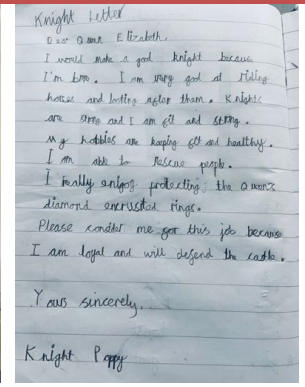 Knight Letter
Dear Queen Elizabeth.
I would make a good knight because
I'm brave. I am very good at riding
horses and looking after them. Knights
are strong and I am fit and strong.
My hobbies are keeping fit and healthy.
I am able to rescue people.
I really enjoy protecting the Queen's
diamond encrusted rings.
Please consider me for this job because
I am loyal and will defend the castle.
Yours sincerely,
Knight Poppy